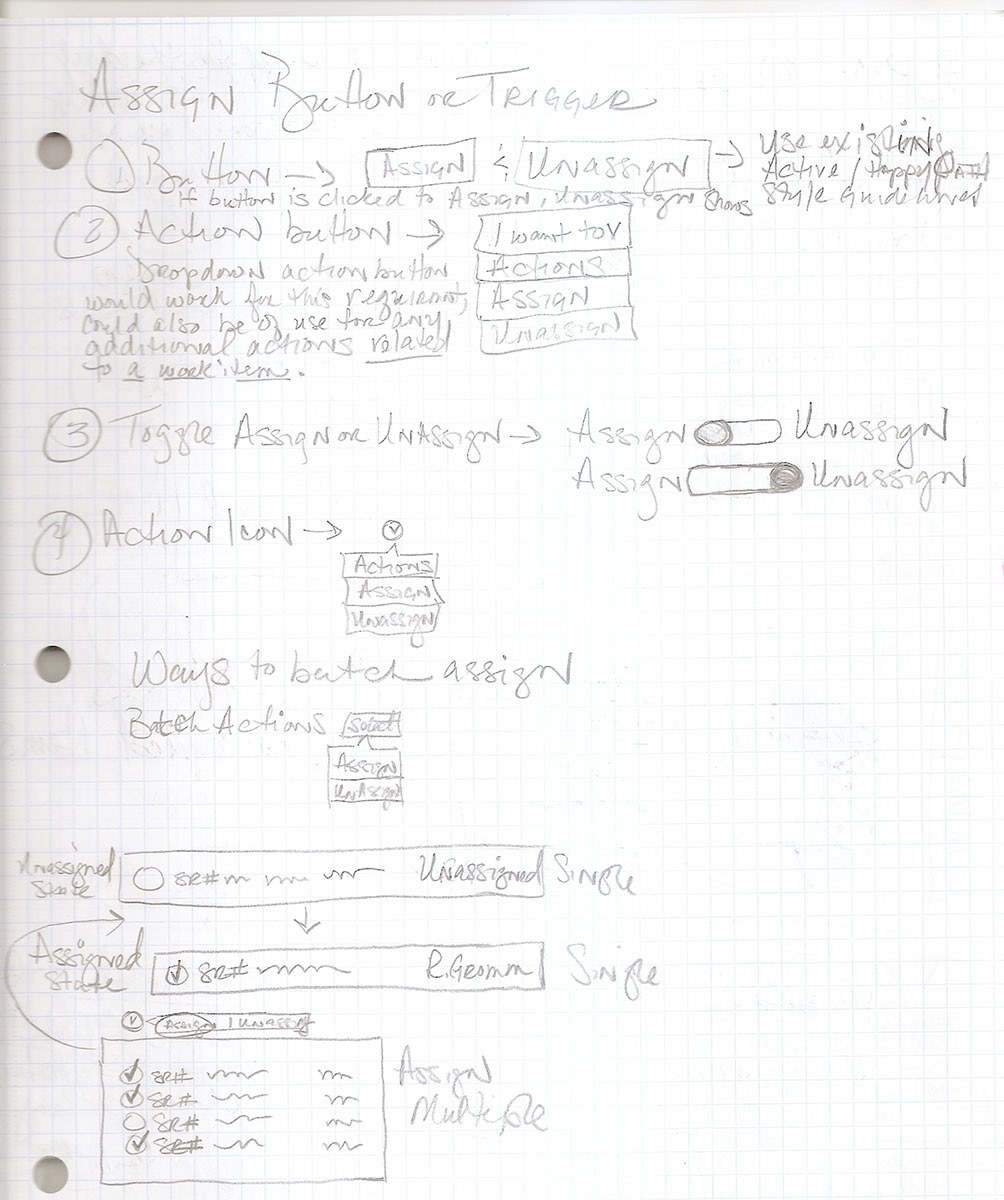 Assign Button or Trigger
1 Button → Assign & Unassign → Use existing
Active / Happy Path
Style Guidelines
if button is clicked to Assign, Unassign shows
2 Action button → I want to v
Actions
Assign
Unassign
Dropdown action button
would work for this requirement,
could also be of use for any
additional actions related
to a work item.
3 Toggle Assign or Unassign → Assign Unassign
Assign Unassign
4 Action Icon →
Actions
Assign
Unassign
Ways to batch assign
Batch Actions Select
Assign
UnAssign
Unassigned
State
SR# Unassigned Single
Assigned
State
SR# R. Gromm Single
Assign / Unassign
SR#
SR#
SR#
SR#
Assign
Multiple